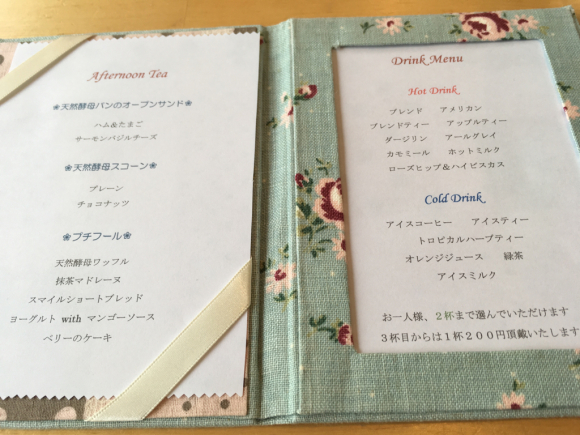 Afternoon Tea
❀天然酵母パンのオープンサンド❀
ハム&たまご
サーモンバジルチーズ
❀天然酵母スコーン❀
プレーン
チョコナッツ
❀プチフール❀
天然酵母ワッフル
抹茶マドレーヌ
スマイルショートブレッド
ヨーグルト with マンゴーソース
ベリーのケーキ
Drink Menu
Hot Drink
ブレンド アメリカン
ブレンドティー アップルティー
ダージリン アールグレイ
カモミール ホットミルク
ローズヒップ&ハイビスカス
Cold Drink
アイスコーヒー アイスティー
トロピカルハーブティー
オレンジジュース 緑茶
アイスミルク
お一人様、２杯まで選んでいただけます
３杯目からは１杯２００円頂戴いたします